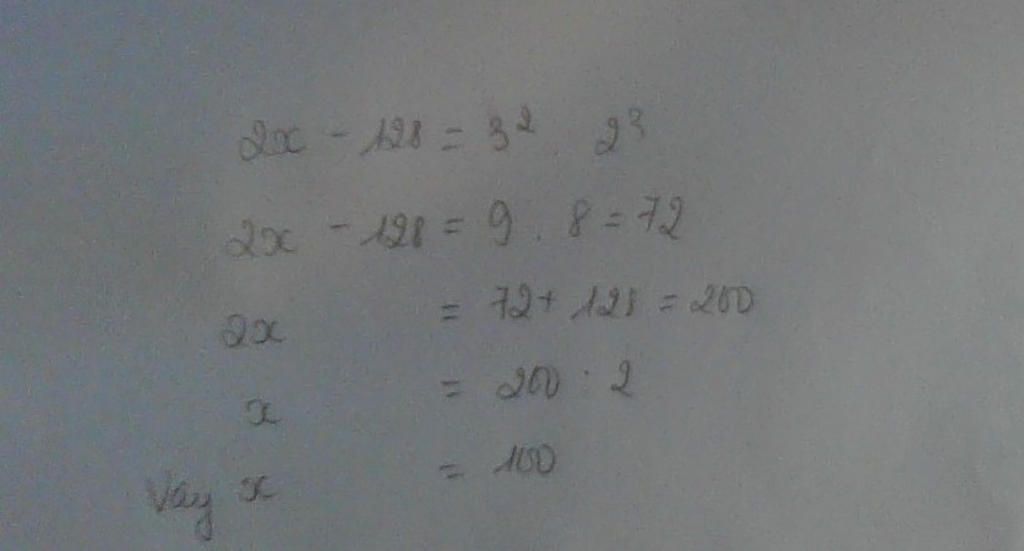 2x - 128 = 3² . 2³
2x - 128 = 9 . 8 = 72
2x = 72 + 128 = 200
x = 200 : 2
Vay x = 100